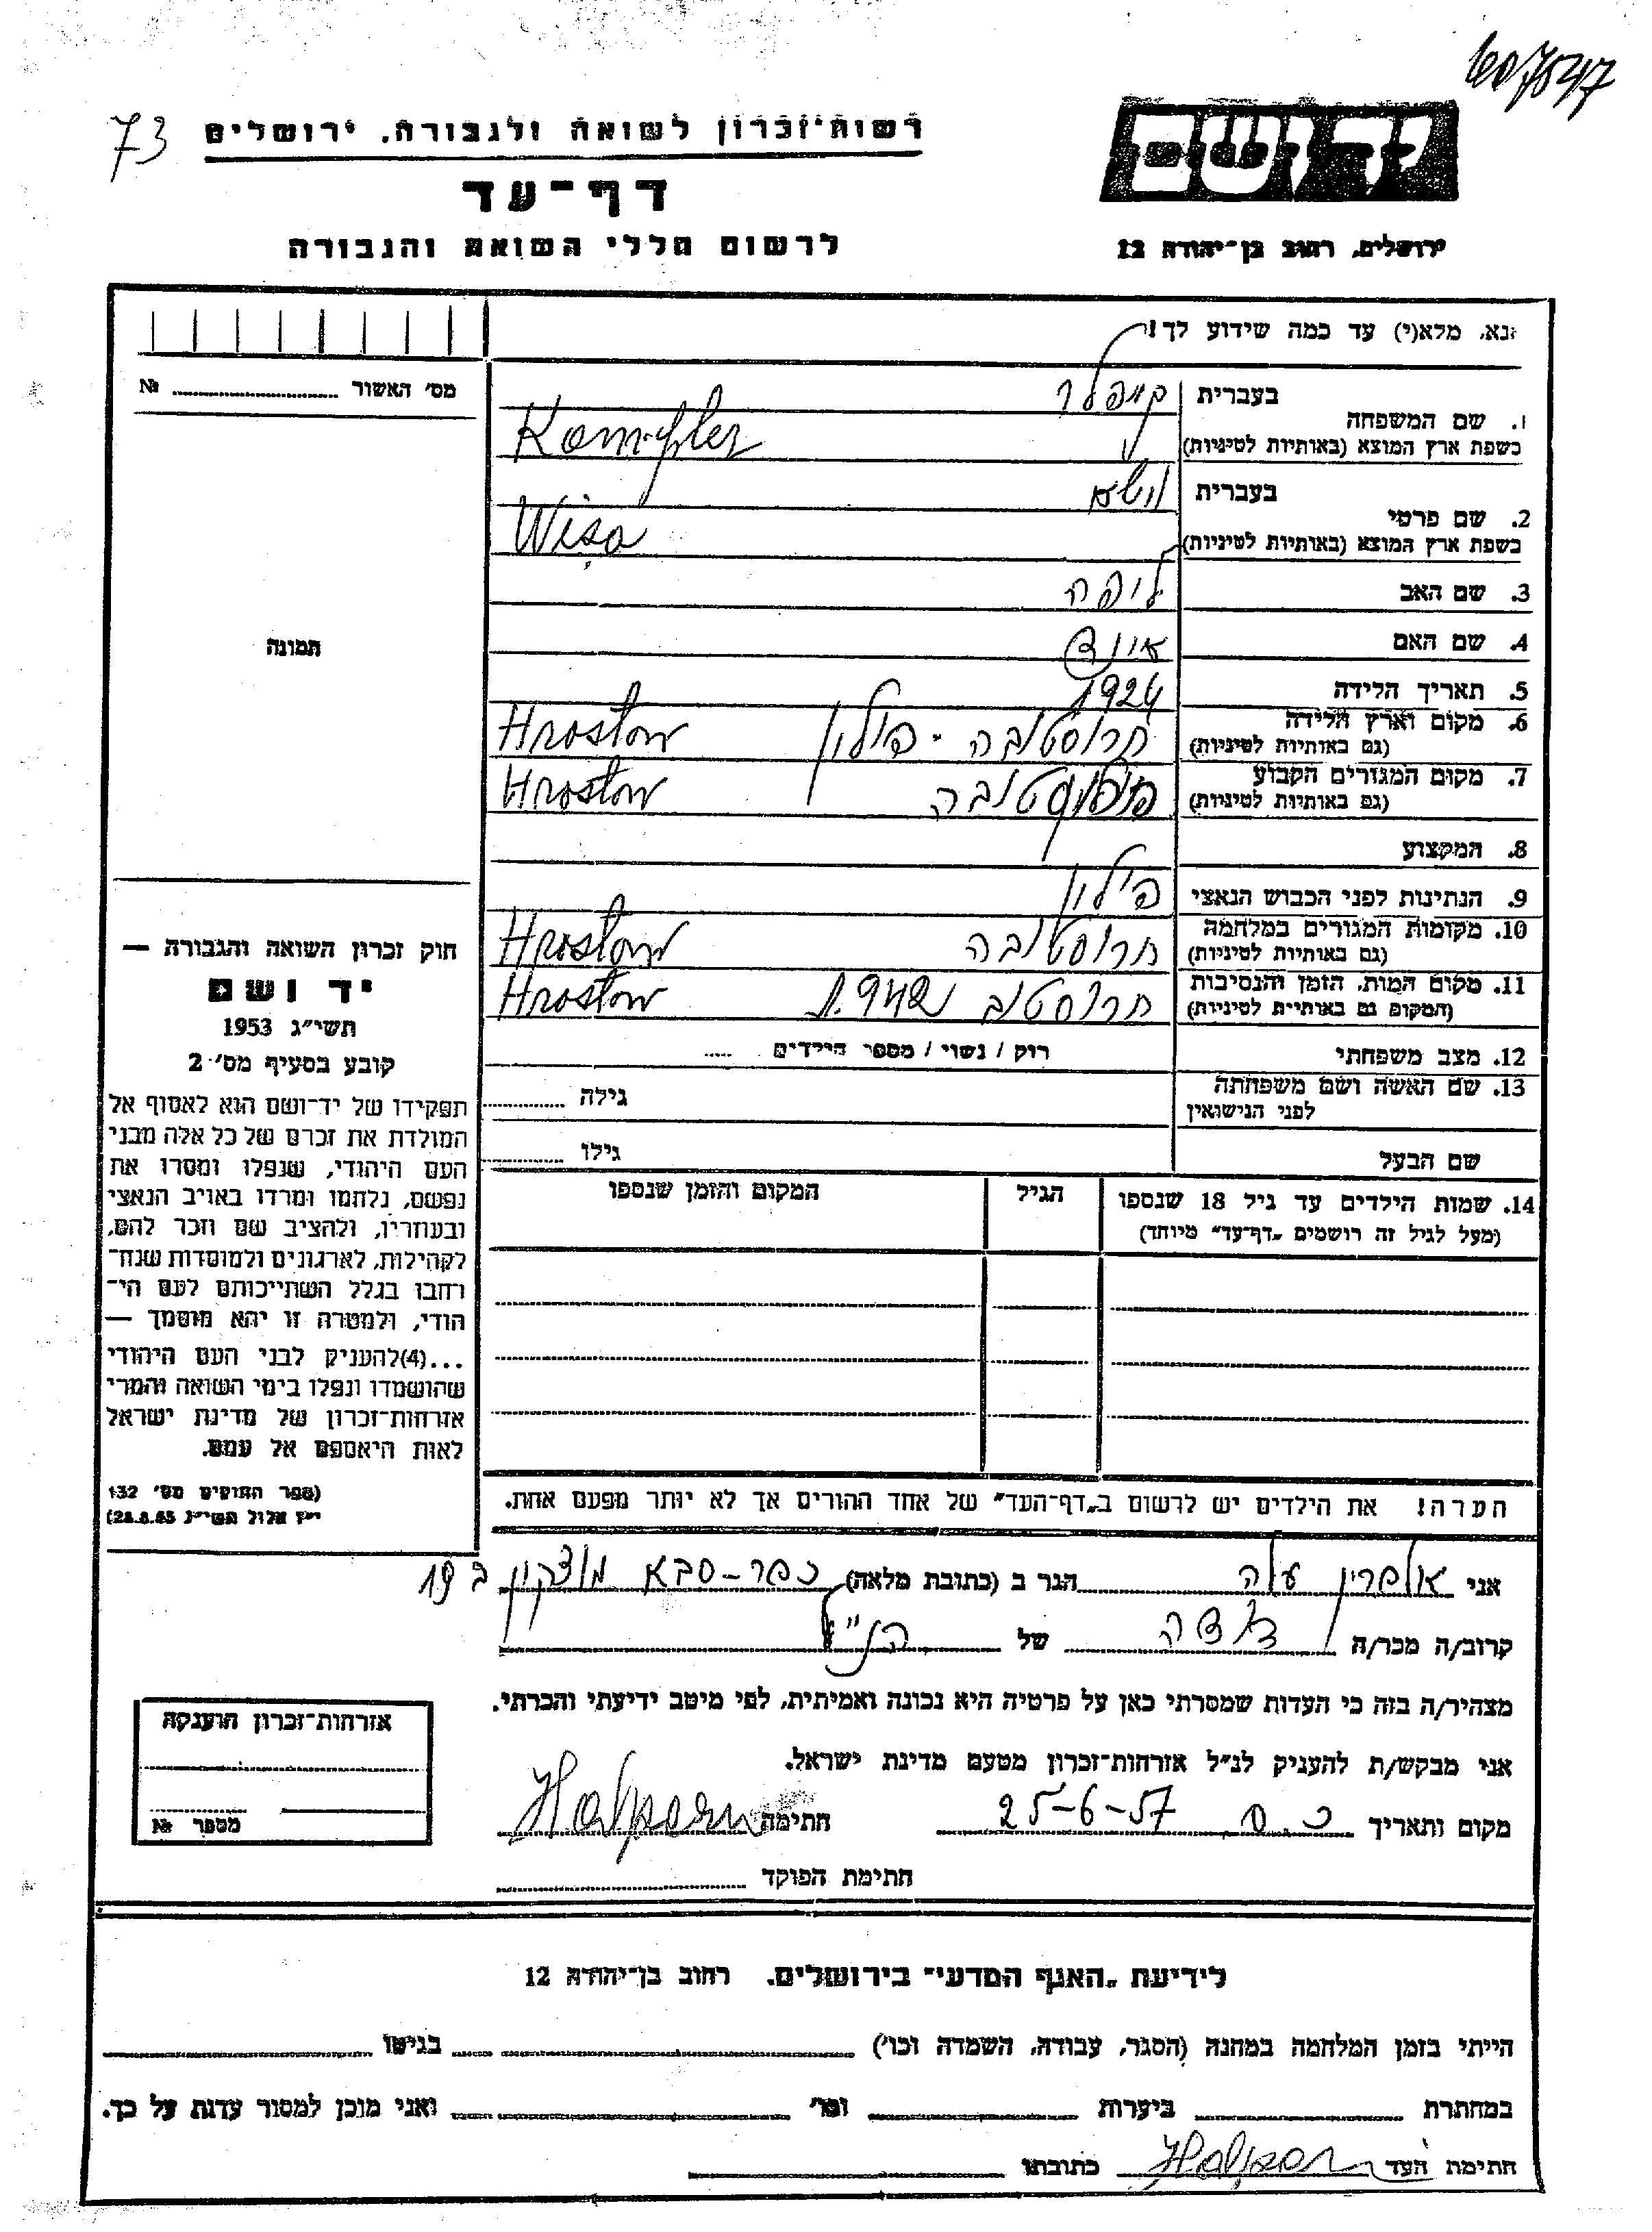 607547
73
רשות־זכרון לשואה ולגבורה, ירושלים
דף־עד
לרשום חללי השואה והגבורה
יד ושם
ירושלים, רחוב בן־יהודה 12
נא, מלא(י) עד כמה שידוע לך!
מס׳ האשור № 
1. שם המשפחה
בעברית קמפלר
בשפת ארץ המוצא (באותיות לטיניות) Kampfler
2. שם פרטי
בעברית
בשפת ארץ המוצא (באותיות לטיניות) Wisa
3. שם האב ליפה
4. שם האם
5. תאריך הלידה 1924
6. מקום וארץ הלידה חרוסטובה - פולין Hrostow
(גם באותיות לטיניות)
7. מקום המגורים הקבוע Hrostow
(גם באותיות לטיניות)
8. המקצוע
9. הנתינות לפני הכבוש הנאצי פולין
10. מקומות המגורים במלחמה חרוסטובה Hrostow
(גם באותיות לטיניות)
11. מקום המות, הזמן והנסיבות חרוסטוב 1942 Hrostow
(המקום גם באותיות לטיניות)
12. מצב משפחתי רוק / נשוי / מספר הילדים
13. שם האשה ושם משפחתה
לפני הנישואין גילה
שם הבעל גילו
14. שמות הילדים עד גיל 18 שנספו הגיל המקום והזמן שנספו
(מעל לגיל זה רושמים „דף־עד” מיוחד)
הערה! את הילדים יש לרשום ב„דף־העד” של אחד ההורים אך לא יותר מפעם אחת.
תמונה
חוק זכרון השואה והגבורה —
יד ושם
תשי״ג 1953
קובע בסעיף מס׳ 2
תפקידו של יד־ושם הוא לאסוף אל
המולדת את זכרם של כל אלה מבני
העם היהודי, שנפלו ומסרו את
נפשם, נלחמו ומרדו באויב הנאצי
ובעוזריו, ולהציב שם וזכר להם,
לקהילות, לארגונים ולמוסדות שנח־
רחבו בגלל השתייכותם לעם הי־
הודי, ולמטרה זו יהא מוסמך —
...(4)להעניק לבני העם היהודי
שהושמדו ונפלו בימי השואה והמרי
אזרחות־זכרון של מדינת ישראל
לאות היאספם אל עמם.
(ספר החוקים מס׳ 132
י״ז אלול תשי״ג 28.8.53)
אני הלפרין הגר ב (כתובת מלאה) כפר-סבא מוצקין 19
קרוב/ה מכר/ה דודה של הנ״ל
מצהיר/ה בזה כי העדות שמסרתי כאן על פרטיה היא נכונה ואמיתית, לפי מיטב ידיעתי והכרתי.
אני מבקש/ת להעניק לנ״ל אזרחות־זכרון מטעם מדינת ישראל.
מקום ותאריך כ.ס. 25-6-57 חתימה Halpern
חתימת הפוקד
אזרחות־זכרון הוענקה
מספר №
לידיעת „האגף המדעי” בירושלים. רחוב בן־יהודה 12
הייתי בזמן המלחמה במחנה (הסגר, עבודה, השמדה וכו׳) בגיטו
במחתרת ביערות וכו׳ ואני מוכן למסור עדות על כך.
חתימת העד Halpern כתובתו